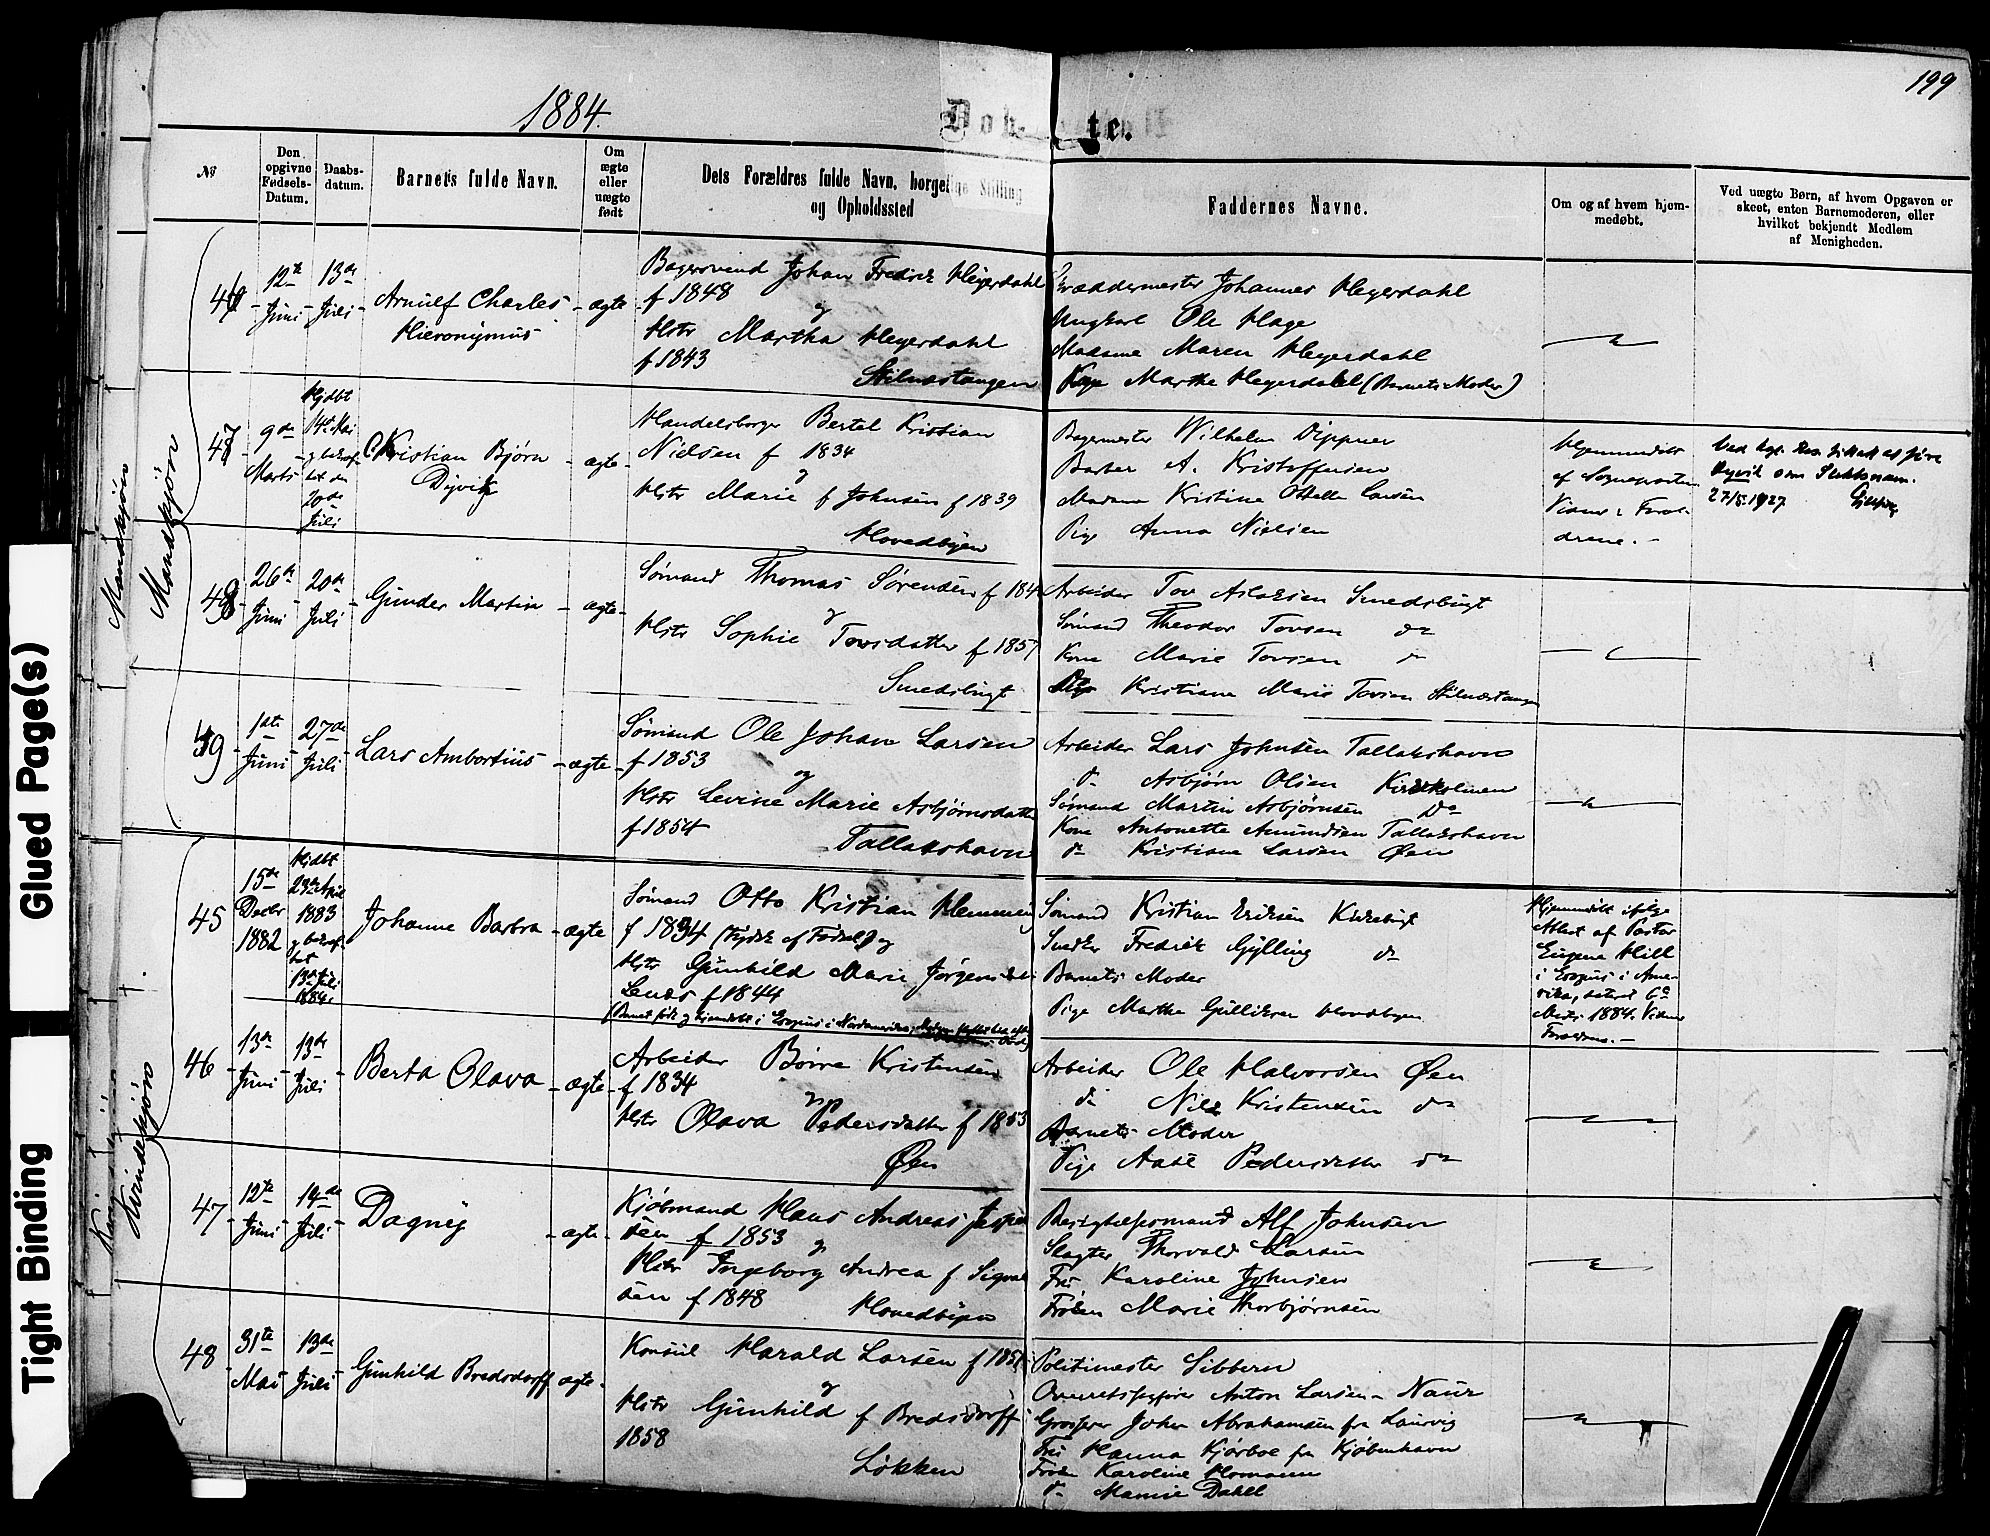 1884.
199
Døbte.
№
Den opgivne Fødsels-Datum.
Daabs-datum.
Barnets fulde Navn.
Om ægte eller uægte født
Dets Forældres fulde Navn, borgelige Stilling og Opholdssted
Faddernes Navne.
Om og af hvem hjem-
medøbt.
Ved uægte Børn, af hvem Opgaven er
skeet, enten Barnemoderen, eller
hvilket bekjendt Medlem
af Menigheden.
Mandkjøn
Mandkjøn
12te Juni
13de Juli
Arnulf Charles
Hieronymus
ægte
Bagersvend Johan Fredrik Heyerdahl
f 1848
og
Hstr Martha Heyerdahl
f 1843
Stilnæstangen
Johannes Heyerdahl
Ungkarl Ole Hage
Madame Maren Heyerdahl
Marthe Heyerdahl (Barnets Moder)
47
9de Marts
Hjdbt 14de Mai
20de Juli
Kristian Bjørn
Dyvik
ægte
Handelsborger Bertel Kristian
Nielsen f 1834
og
Hstr Marie f Johnsen f 1839
Hovedbyen
Bagermester Wilhelm Dippner
Barber A. Kristoffersen
Madame Kristine Othelle Larsen
Pige Anna Nielsen
Hjemmedøbt
af Sognepresten
Vidner: Foræl-
drene.
Dyvik som Slektsnavn.
48
26de Juni
20de Juli
Gunder Martin
ægte
Sømand Thomas Sørensen f 184
og
Hstr Sophie Tovsdatter f 1857
Smedsbugt
Arbeider Tov Aslaksen Smedsbugt
Sømand Theodor Tovsen do
Kone Marie Tovsen do
Kristiane Marie Tovsen Stilnæstangen
49
1ste Juni
27de Juli
Lars Ambortius
ægte
Sømand Ole Johan Larsen
f 1853
og
Hstr Levine Marie Asbjørnsdatter
f 1854
Tallakshavn
Arbeider Lars Johnsen Tallakshavn
do Asbjørn Olsen Kirkholmen
Sømand Martin Asbjørnsen do
Kone Antonette Amundsen Tallakshavn
do Kristiane Larsen Øen
Kvindekjøn
45
15de Decbr 1882
Hjdbt 29de April 1883
og bekræf-
tet
13de Juli 1884
Johanne Barbra
ægte
Sømand Otto Kristian Hemming
f 1834 (Tydsk af Fødsel) og
Hstr Gunhild Marie Jørgens
f 1844
Sømand Kristian Eriksen Kirkebugt
Snedker Fredrik Gylling do
Barnets Moder
Pige Marthe Gulliksen Hovedbyen
Hjemmedøbt ifølge
Attest af Pastor
Eugene Hill
i Esopus i Ame-
rika, dateret 6te
Marts 1884. Vidner
Forældrene.
46
13de Juni
13de Juli
Berta Olava
ægte
Arbeider Børre Kristensen
f 1834
og
Hstr Olava Pedersdatter f 1853
Øen
Arbeider Ole Halvorsen Øen
do Nils Kristensen do
Barnets Moder
Pige Aase Pedersdatter do
47
12te Juni
14de Juli
Dagny
ægte
Kjøbmand Hans Andreas Jesper
sen f 1853
og
Hstr Ingeborg Andrea f Sigval
sen f 1848
Hovedbyen
Besigtelsesmand Alf Johnsen
Slagter Thorvald Larsen
Fru Karoline Johnsen
Frøken Marie Thorbjørnsen
48
31te Mai
13de Juli
Gunhild Bredsdorff
ægte
Konsul Harald Larsen f 185
og
Hstr Gunhild f Bredsdorff
1858
Løkken
Politimester Sibbern
Overretssagfører Anton Larsen
Grosserer John Abrahamsen fra Laurvig
Fru Hanna Kjørboe fra Kjøbenhavn
Frøken Karoline Homann
do Mamie Dahll
Glued Page(s)
Tight Binding